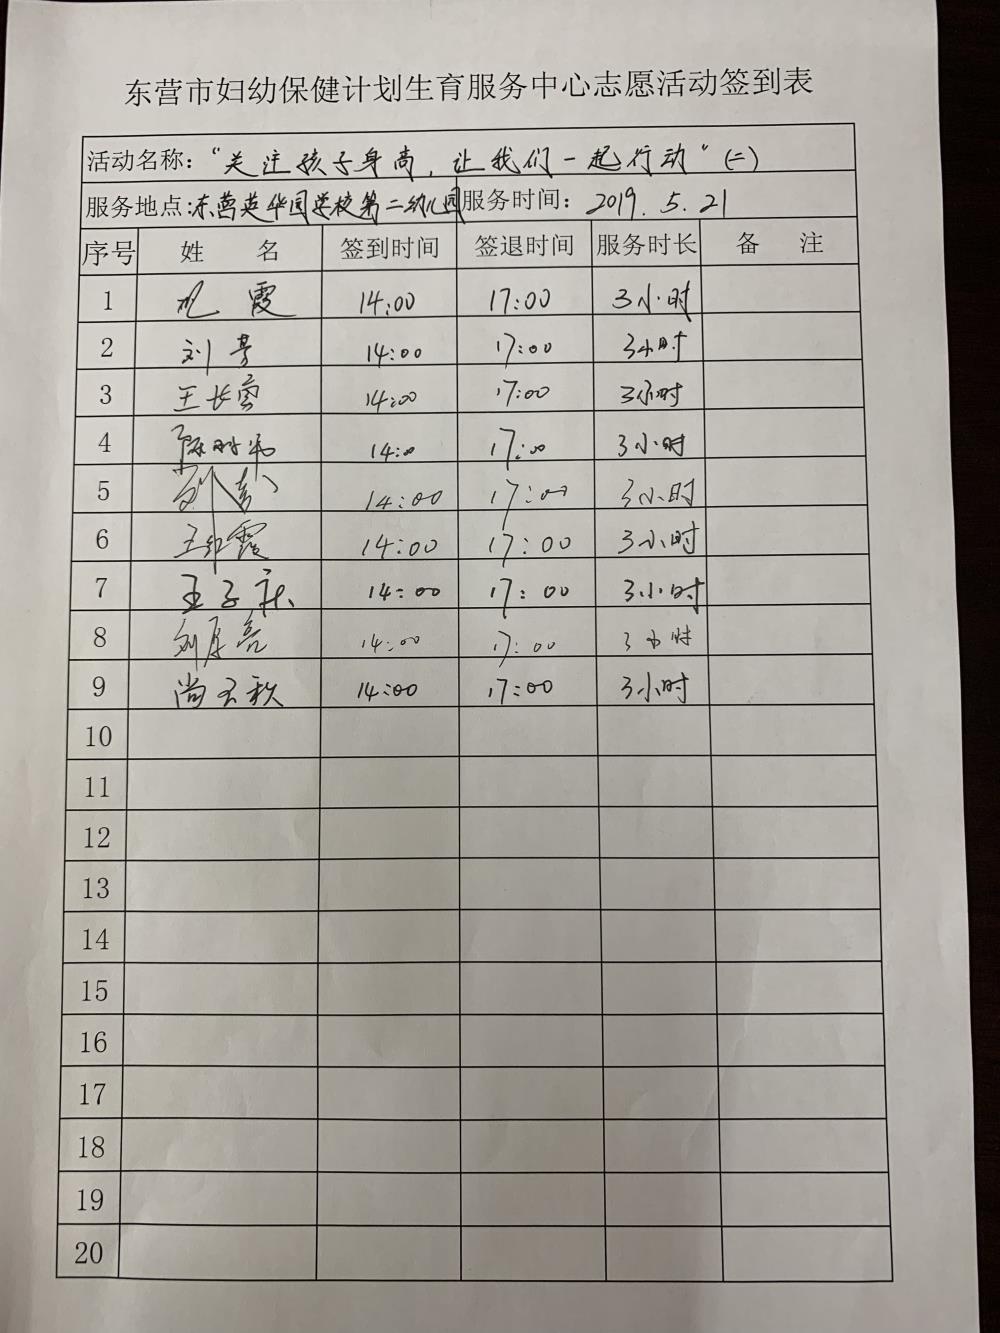 东营市妇幼保健计划生育服务中心志愿活动签到表
活动名称："关注孩子身高，让我们一起行动"（二）
服务地点：东营英华园学校第二幼儿园 服务时间：2019.5.21
序号 姓 名 签到时间 签退时间 服务时长 备 注
1 霞 14:00 17:00 3小时
2 刘芳 14:00 17:00 3小时
3 王长 14:00 17:00 3小时
4 陈 14:00 17:00 3小时
5 14:00 17:00 3小时
6 王 霞 14:00 17:00 3小时
7 王子 14:00 17:00 3小时
8 刘 亮 14:00 17:00 3小时
9 尚 秋 14:00 17:00 3小时
10
11
12
13
14
15
16
17
18
19
20